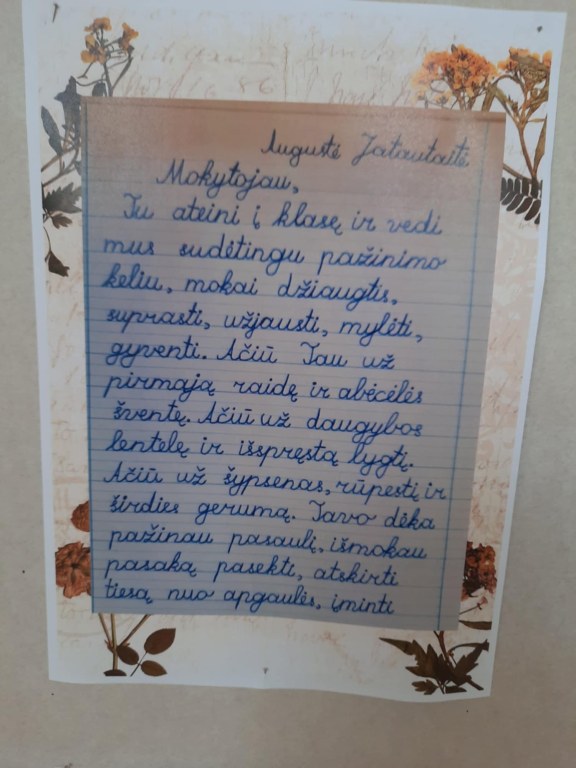 Augustė Jatautaitė
Mokytojau,
Tu ateini į klasę ir vedi
mus sudėtingu pažinimo
keliu, mokai džiaugtis,
suprasti, užjausti, mylėti,
gyventi. Ačiū Tau už
pirmąją raidę ir abėcėlės
šventę. Ačiū už daugybos
lentelę ir išspręstą lygtį.
Ačiū už šypsenas, rūpestį ir
širdies gerumą. Tavo dėka
pažinau pasaulį, išmokau
pasaką pasekti, atskirti
tiesą nuo apgaulės, įminti